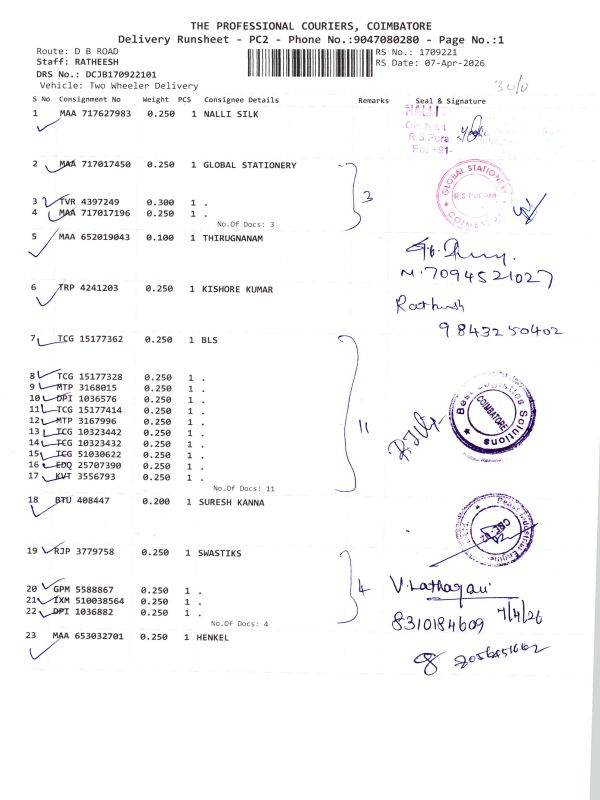 THE PROFESSIONAL COURIERS, COIMBATORE
Delivery Runsheet - PC2 - Phone No.:9047080280 - Page No.:1
Route: D B ROAD
RS No.: 1709221
Staff: RATHEESH
RS Date: 07-Apr-2026
DRS No.: DCJB170922101
Vehicle: Two Wheeler Delivery
S No Consignment No Weight PCS Consignee Details Remarks Seal & Signature
1 MAA 717627983 0.250 1 NALLI SILK
NALLI
R.S.Pura
Ph: +91-
2 MAA 717017450 0.250 1 GLOBAL STATIONERY
GLOBAL STATIONERY
R.S PURAM
COIMBATORE
3 TVR 4397249 0.300 1 .
3
4 MAA 717017196 0.250 1 .
No.Of Docs: 3
5 MAA 652019043 0.100 1 THIRUGNANAM
M. 7094521027
6 TRP 4241203 0.250 1 KISHORE KUMAR
Rathish
9843250402
7 TCG 15177362 0.250 1 BLS
8 TCG 15177328 0.250 1 .
9 MTP 3168015 0.250 1 .
10 DPI 1036576 0.250 1 .
11 TCG 15177414 0.250 1 .
12 MTP 3167996 0.250 1 .
13 ICG 10323442 0.250 1 .
14 ICG 10323432 0.250 1 .
15 TCG 51030622 0.250 1 .
16 EDQ 25707390 0.250 1 .
17 KVT 3556793 0.250 1 .
No.Of Docs: 11
11
Best Logistics Solutions
COIMBATORE
18 BTU 408447 0.200 1 SURESH KANNA
19 RJP 3779758 0.250 1 SWASTIKS
20 GPM 5588867 0.250 1 .
21 IXM 510038564 0.250 1 .
22 DPI 1036882 0.250 1 .
No.Of Docs: 4
4
8310184609 7/4/26
23 MAA 653032701 0.250 1 HENKEL